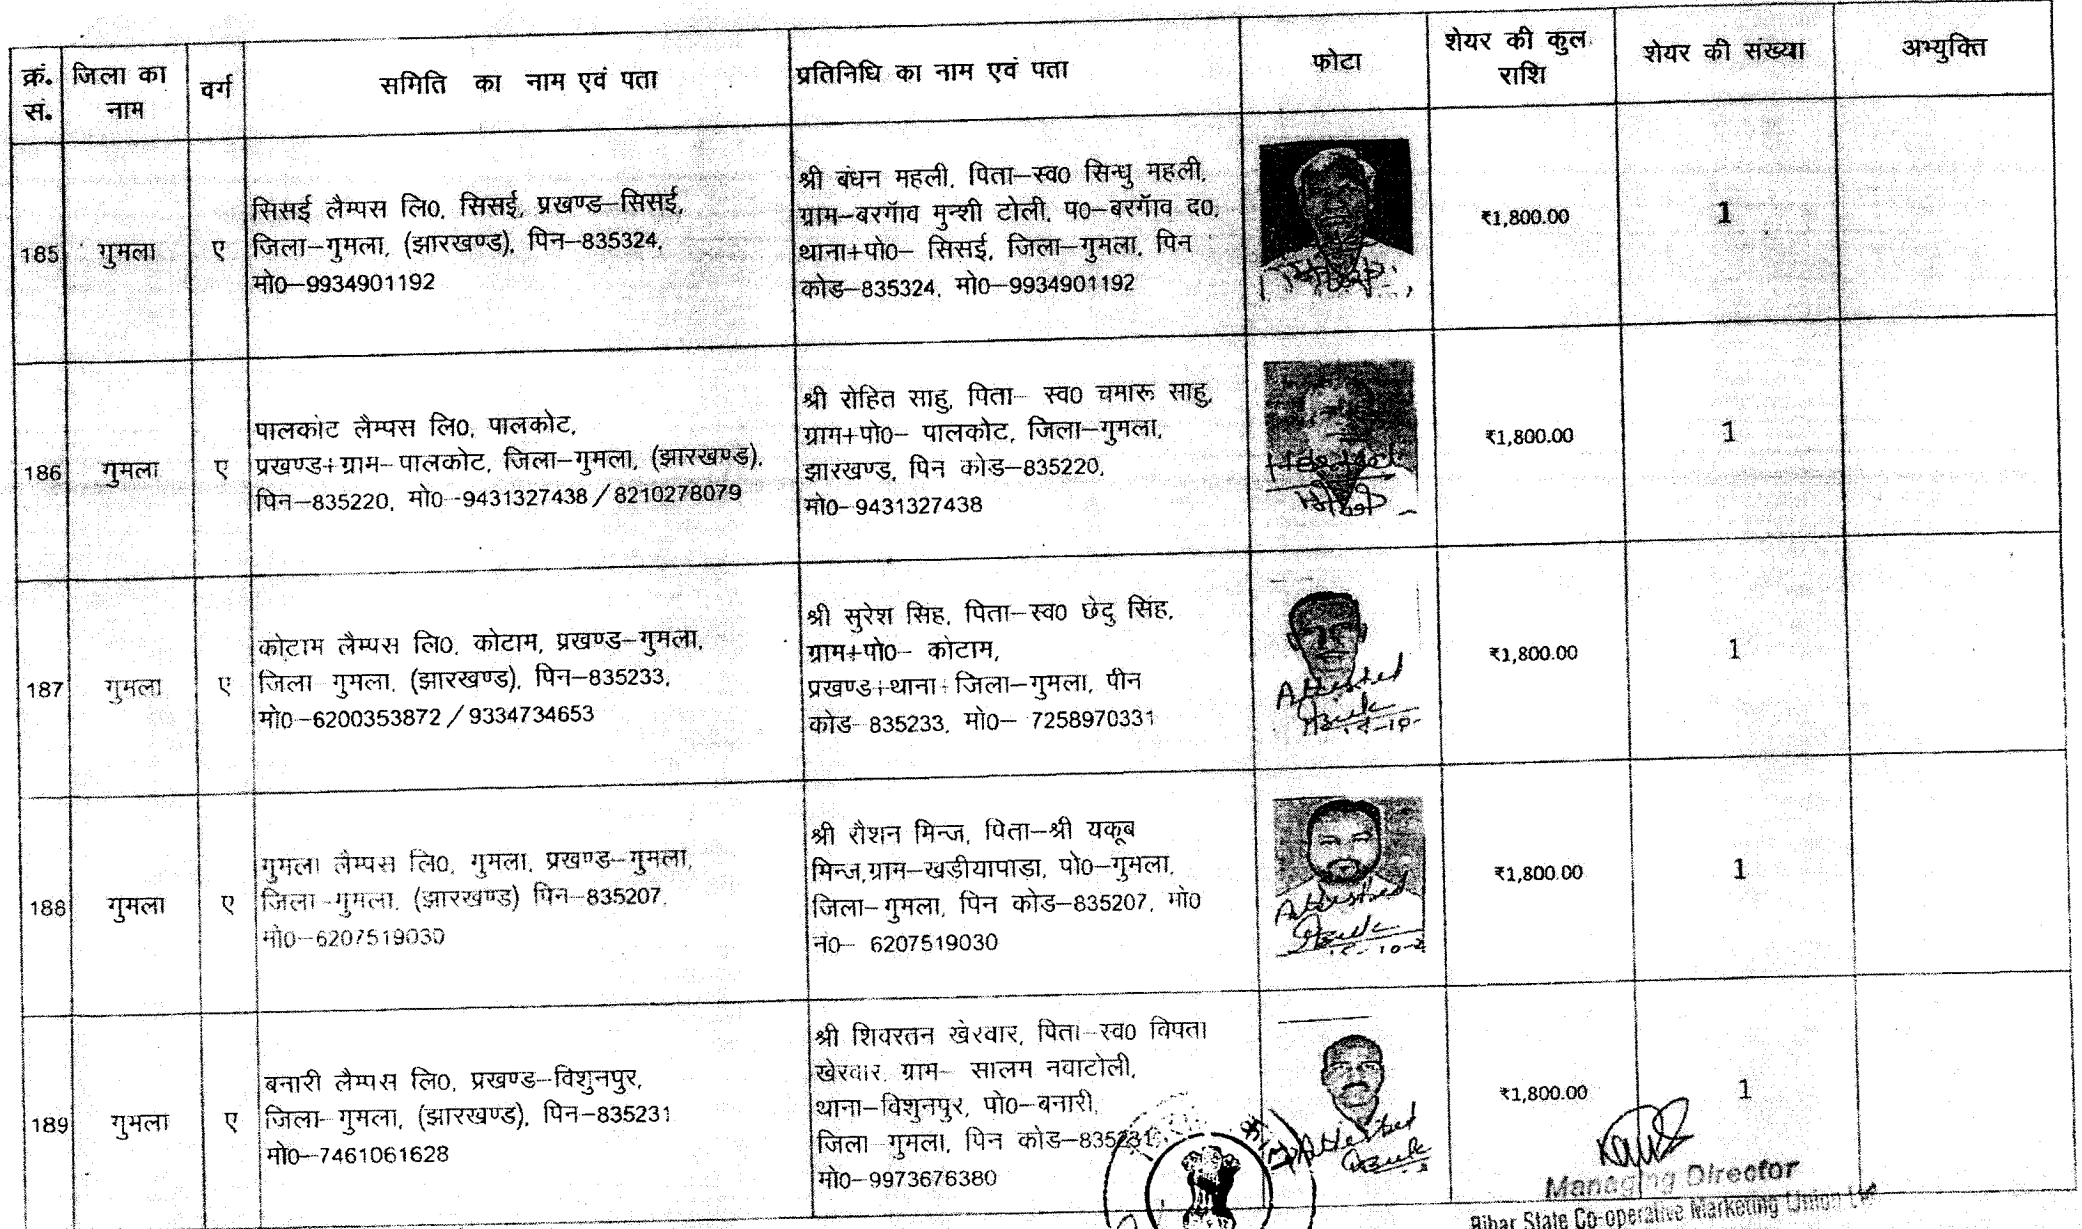 क्रं. सं.
जिला का नाम
वर्ग
समिति का नाम एवं पता
प्रतिनिधि का नाम एवं पता
फोटा
शेयर की कुल राशि
शेयर की संख्या
अभ्युक्ति
185
गुमला
ए
सिसई लैम्पस लि0, सिसई, प्रखण्ड–सिसई,
जिला–गुमला, (झारखण्ड), पिन–835324,
मो0–9934901192
श्री बंधन महली, पिता–स्व0 सिन्धु महली,
ग्राम–बरगॅाव मुन्शी टोली, प0–बरगॅाव द0,
थाना+पो0– सिसई, जिला–गुमला, पिन
कोड–835324, मो0–9934901192
₹1,800.00
1
186
गुमला
ए
पालकोट लैम्पस लि0, पालकोट,
प्रखण्ड+ग्राम–पालकोट, जिला–गुमला, (झारखण्ड),
पिन–835220, मो0–9431327438/8210278079
श्री रोहित साहु, पिता– स्व0 चमारू साहु,
ग्राम+पो0– पालकोट, जिला–गुमला,
झारखण्ड, पिन कोड–835220,
मो0–9431327438
₹1,800.00
1
187
गुमला
ए
कोटाम लैम्पस लि0, कोटाम, प्रखण्ड–गुमला,
जिला गुमला, (झारखण्ड), पिन–835233,
मो0–6200353872/9334734653
श्री सुरेश सिह, पिता–स्व0 छेदु सिंह,
ग्राम+पो0– कोटाम,
प्रखण्ड+थाना+जिला–गुमला, पीन
कोड–835233, मो0– 7258970331
Attested
₹1,800.00
1
188
गुमला
ए
गुमला लैम्पस लि0, गुमला, प्रखण्ड–गुमला,
जिला–गुमला, (झारखण्ड) पिन–835207,
मो0–6207519030
श्री रौशन मिन्ज, पिता–श्री यकूब
मिन्ज,ग्राम–खडीयापाडा, पो0–गुमला,
जिला–गुमला, पिन कोड–835207, मो0
न0– 6207519030
Attested
₹1,800.00
1
189
गुमला
ए
बनारी लैम्पस लि0, प्रखण्ड–विशुनपुर,
जिला–गुमला, (झारखण्ड), पिन–835231
मो0–7461061628
श्री शिवरतन खेरवार, पिता–स्व0 विपता
खेरवार, ग्राम– सालम नवाटोली,
थाना–विशुनपुर, पो0–बनारी,
जिला गुमला, पिन कोड–835231,
मो0–9973676380
Attested
₹1,800.00
1
Managing Director
Bihar State Co-operative Marketing Union Ltd